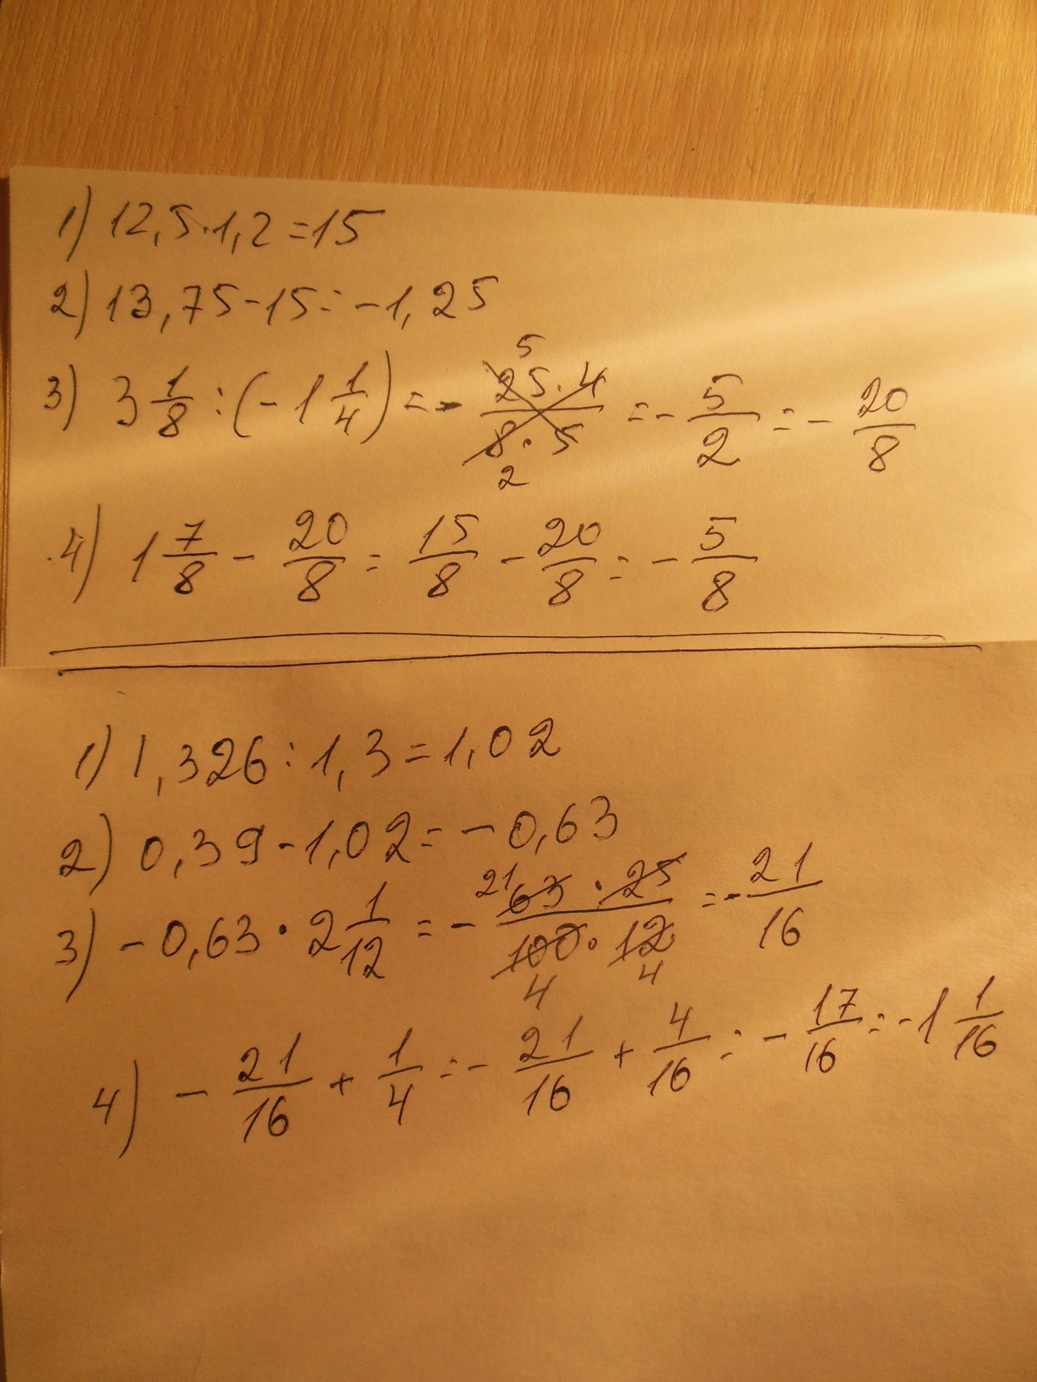 1) 12,5·1,2=15
2) 13,75-15=-1,25
3) 3 1/8 : (-1 1/4) = - (25·4)/(8·5) 5 2 = - 5/2 = - 20/8
4) 1 7/8 - 20/8 = 15/8 - 20/8 = - 5/8
1) 1,326 : 1,3 = 1,02
2) 0,39 - 1,02 = -0,63
3) -0,63 · 2 1/12 = - (63·25)/(100·12) 21 4 4 = - 21/16
4) - 21/16 + 1/4 = - 21/16 + 4/16 = - 17/16 = -1 1/16